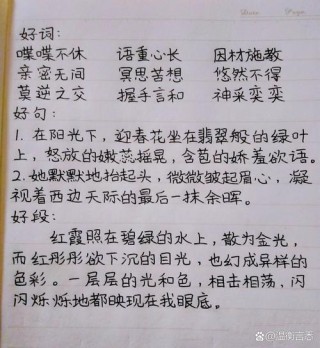 好词:
喋喋不休 语重心长 因材施教
亲密无间 冥思苦想 悠然不得
莫逆之交 握手言和 神采奕奕
好句:
1. 在阳光下，迎春花坐在翡翠般的绿叶
上，怒放的嫩蕊摇晃，含苞的娇羞欲语。
2. 她默默地抬起头，微微皱起眉心，凝
视着西边天际的最后一抹余晖。
好段:
红霞照在碧绿的水上，散为金光，
而红彤彤欲下沉的日光，也幻成异样的
色彩。一层层的光和色，相击相荡，闪
闪烁烁地都映现在我眼底。